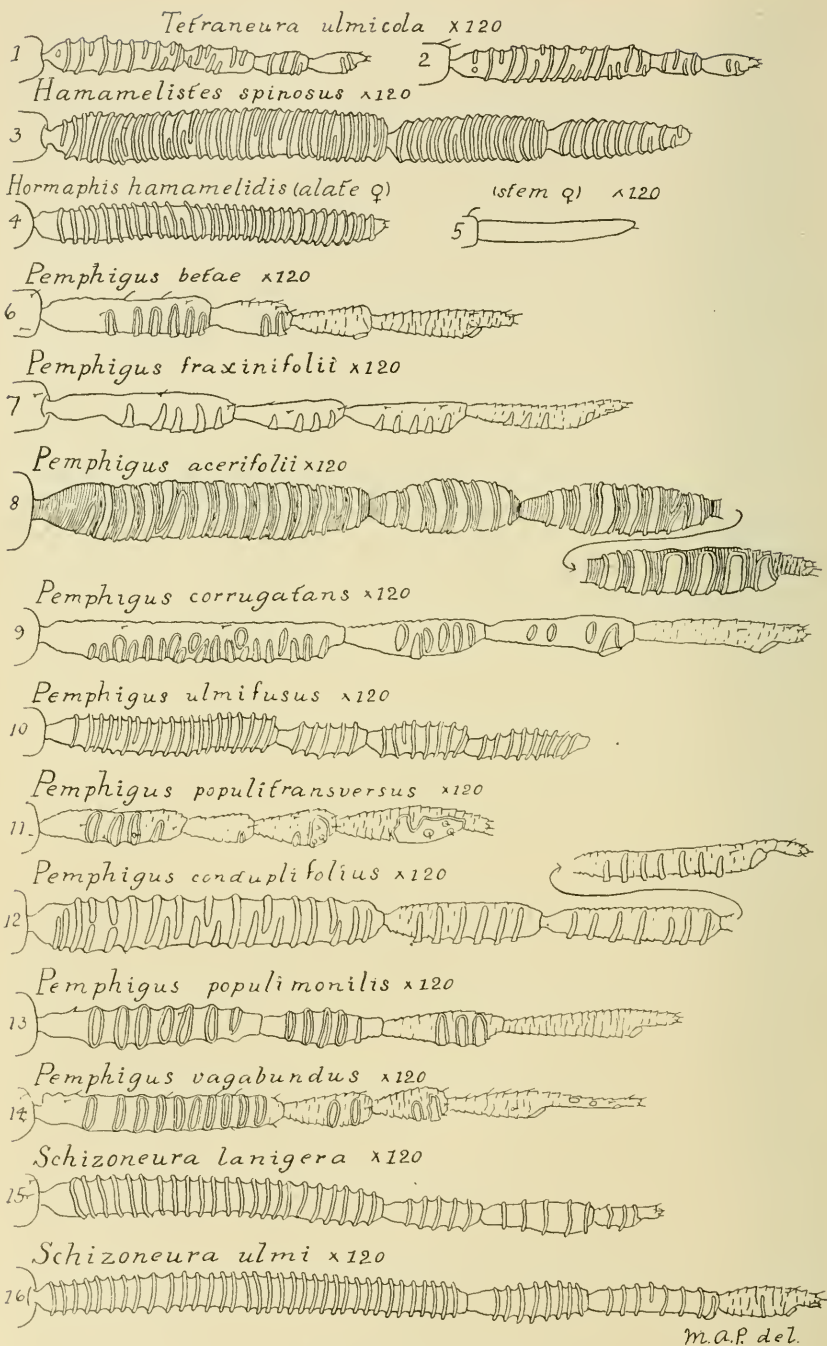 Tetraneura ulmicola ×120
1 2
Hamamelistes spinosus ×120
3
Hormaphis hamamelidis (alate ♀) (stem ♀) ×120
4 5
Pemphigus betae ×120
6
Pemphigus fraxinifolii ×120
7
Pemphigus acerifolii ×120
8
Pemphigus corrugatans ×120
9
Pemphigus ulmifusus ×120
10
Pemphigus populitransversus ×120
11
Pemphigus conduplifolius ×120
12
Pemphigus populimonilis ×120
13
Pemphigus vagabundus ×120
14
Schizoneura lanigera ×120
15
Schizoneura ulmi ×120
16
M.A.P. del.